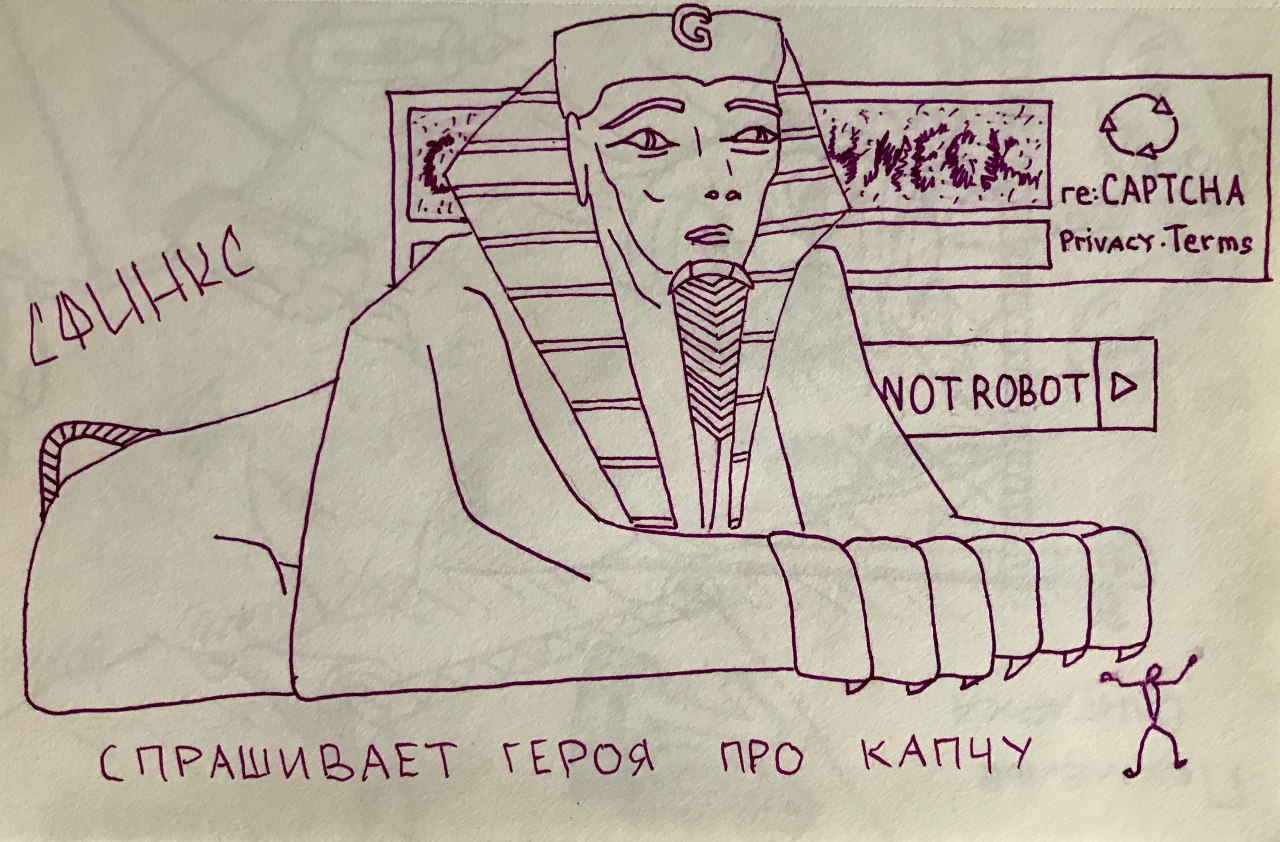 G
re:CAPTCHA
Privacy.Terms
СФИНКС
NOT ROBOT
СПРАШИВАЕТ ГЕРОЯ ПРО КАПЧУ